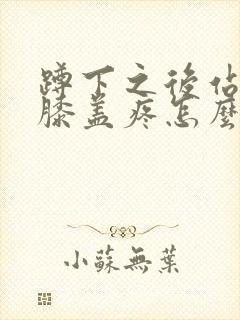 蹲下之後佔
膝蓋疼怎麼
小蘇無葉